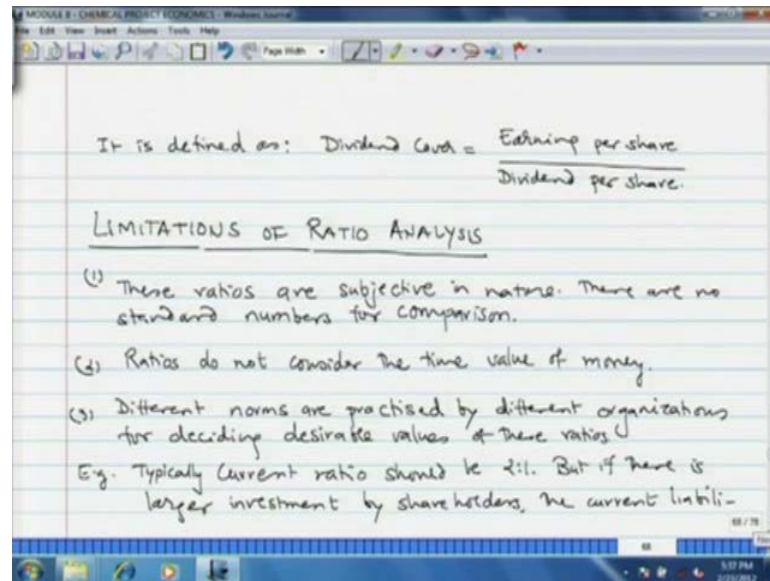 MODULE 8 - CHEMICAL PROJECT ECONOMICS - Windows Journal
File Edit View Insert Actions Tools Help
Page Width
It is defined as: Dividend Cover = Earning per share
Dividend per share.
LIMITATIONS OF RATIO ANALYSIS
(1) These ratios are subjective in nature. There are no
standard numbers for comparison.
(2) Ratios do not consider the time value of money.
(3) Different norms are practised by different organizations
for deciding desirable values of these ratios
E.g. Typically current ratio should be 2:1. But if there is
larger investment by shareholders, the current liabili-
68 / 78
68
5:37 PM
2/23/2012